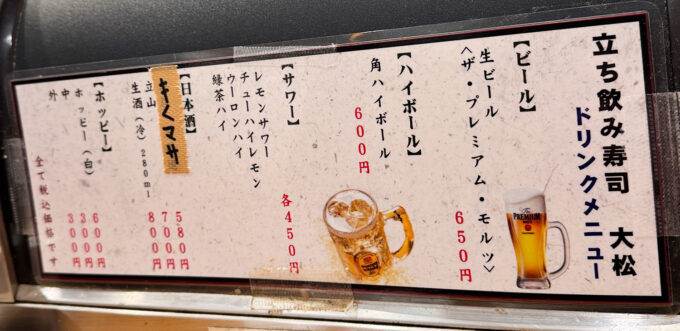 立ち飲み寿司 大松
ドリンクメニュー
【ビール】
生ビール
〈ザ・プレミアム・モルツ〉 650円
The
PREMIUM
MALT'S
【ハイボール】
角ハイボール
600円
【サワー】
レモンサワー
チューハイレモン
ウーロンハイ
緑茶ハイ
各450円
【日本酒】
キクマサ 580円
立山 700円
生酒(冷)280ml 800円
【ホッピー】 600円
ホッピー(白) 300円
中 300円
外
全て税込価格です